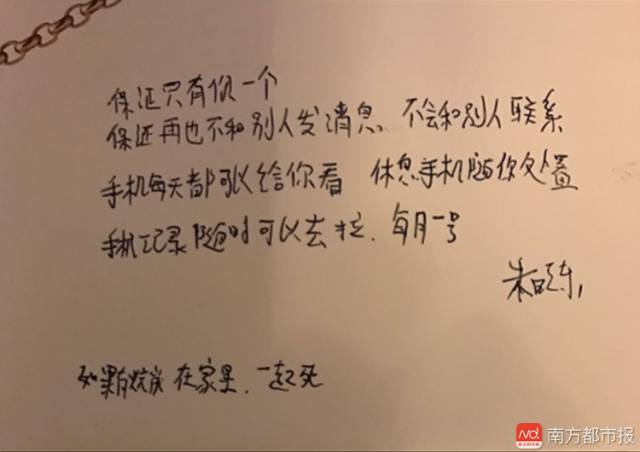 保证只有你一个
保证再也不和别人发消息 不会和别人联系
手机每天都可以给你看 休息手机随你处置
手机记录随时可以去拉.每月一号
朱晓东
如果有炕炭在家里.一起死
南方都市报